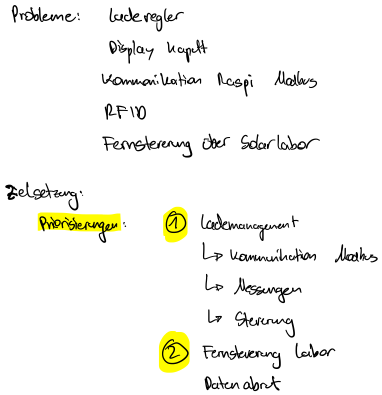 Probleme: Laderegler
Display kaputt
Kommunikation Raspi Modbus
RFID
Fernsteuerung über Solarlabor
Zielsetzung:
Priorisierungen: ① Lademanagement
↳ Kommunikation Modbus
↳ Messungen
↳ Steuerung
② Fernsteuerung Labor
Datenabruf